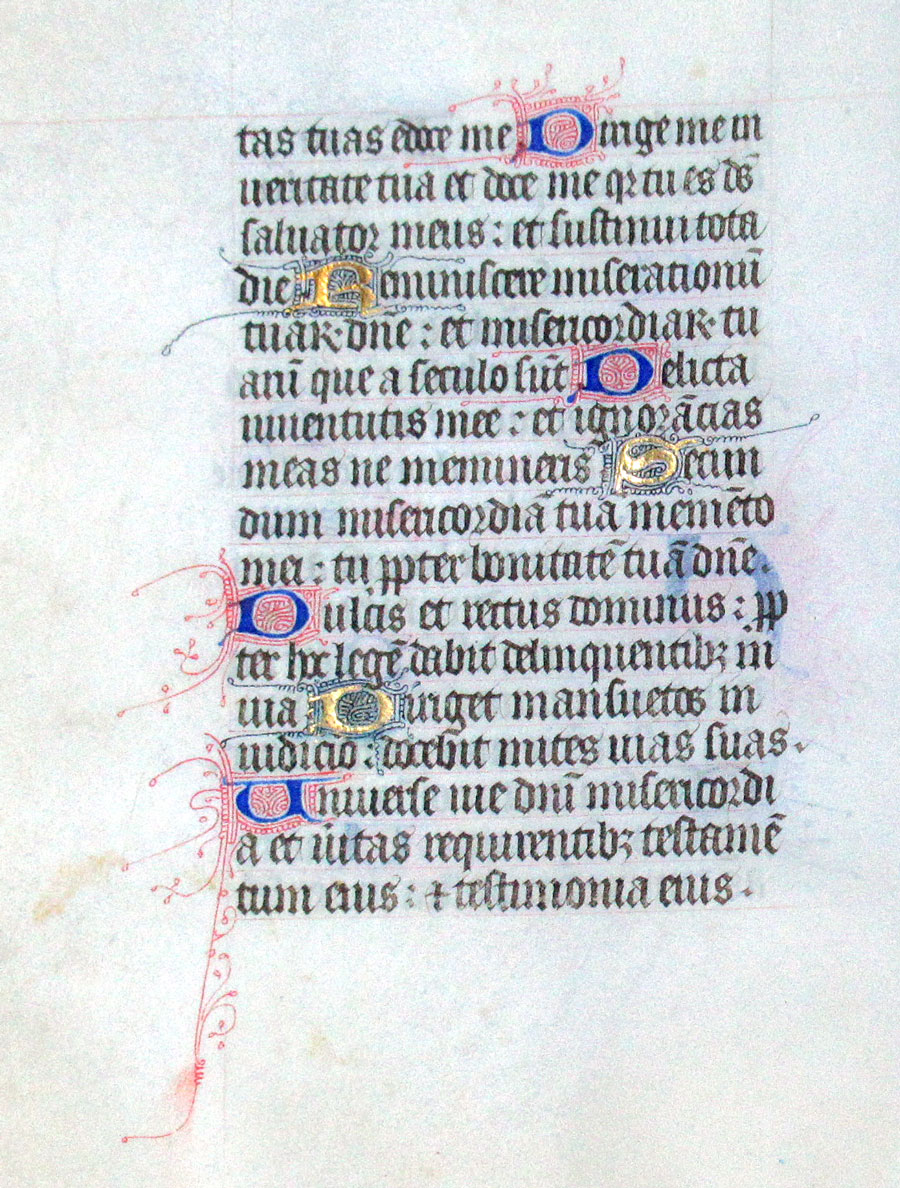 tas tuas edoce me Dirige me in
veritate tua et doce me qr tu es ds̄
saluator meus : et sustinui tota
die Reminiscere miserationū
tuaꝝ dn̄e : et misericordiaꝝ tu
arū que a seculo sūt Delicta
iuuentutis mee : et ignorācias
meas ne memineris Secun
dum misericordiā tuā memēto
mei : tu ꝓpter bonitatē tuā dn̄e .
Dulcis et rectus dominus : ꝓp
ter hoc legē dabit delinquentibꝫ in
uia Diriget mansuetos in
iudicio : docebit mites uias suas .
Uniuerse uie dn̄i misericordi
a et ūitas requirentibꝫ testamē
tum eius : ⁊ testimonia eius .